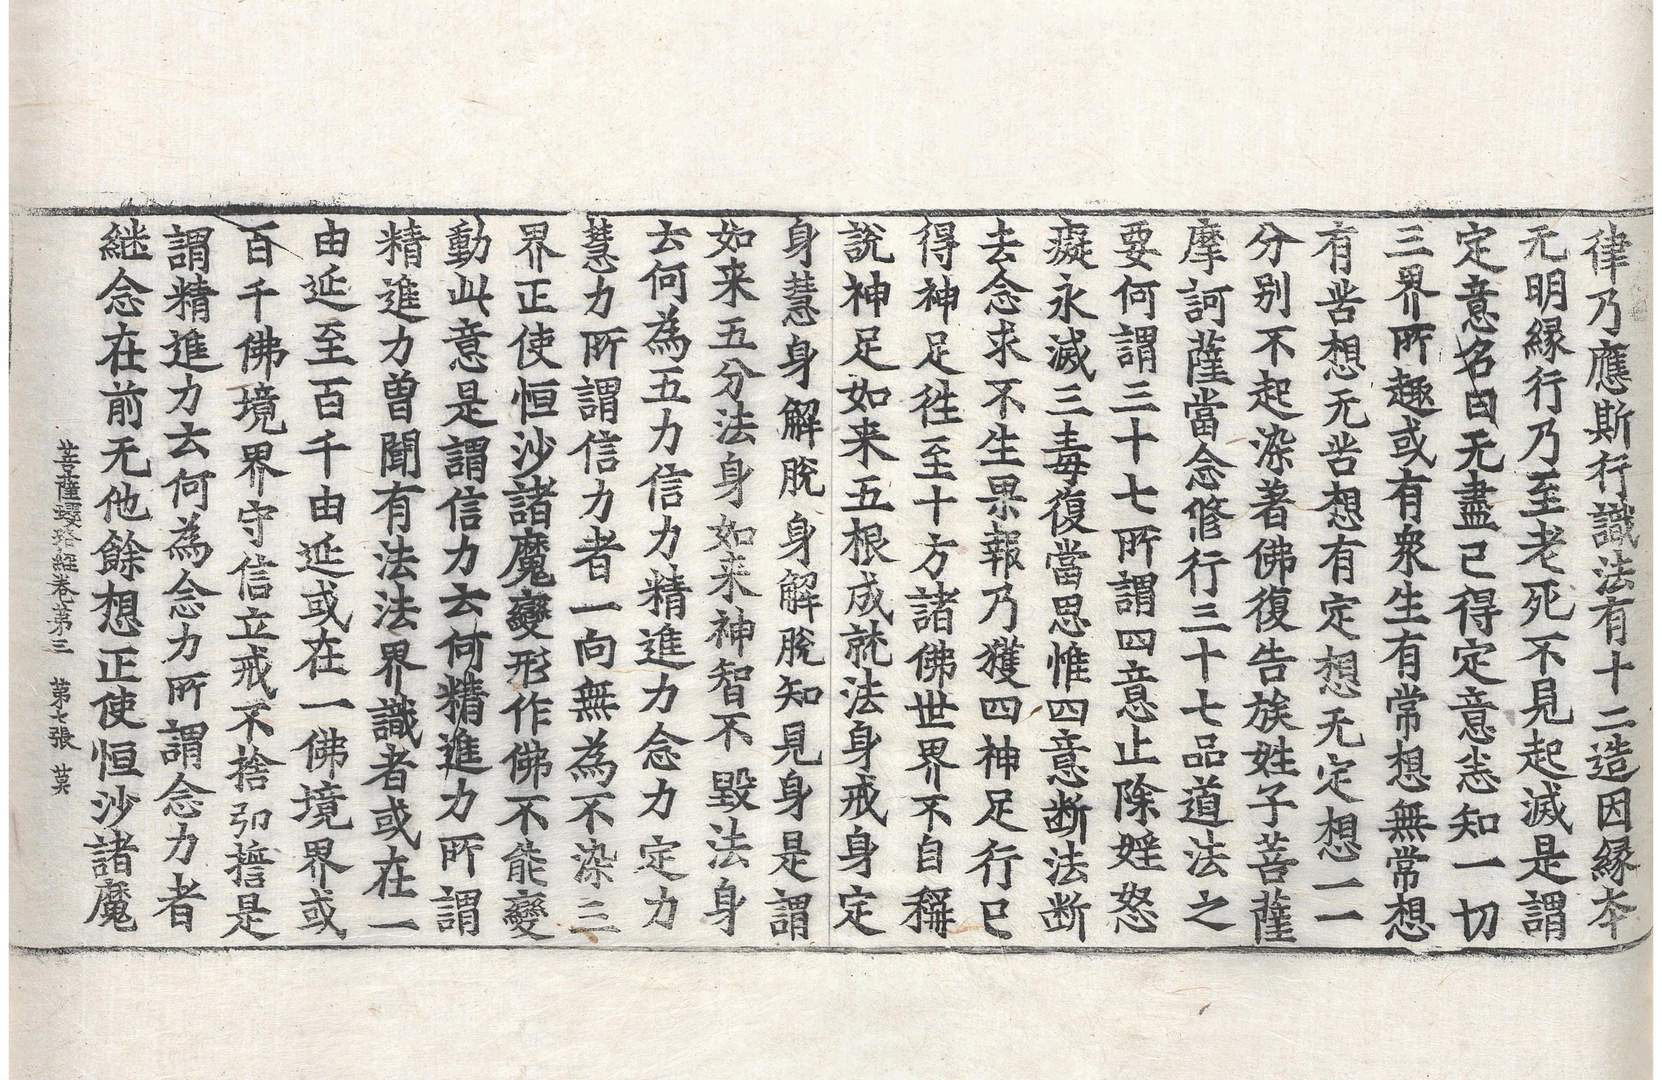 律乃應斯行識法有十二造因緣本
无明緣行乃至老死不見起滅是謂
定意名曰无盡已得定意悉知一切
三界所趣或有衆生有常想無常想
有苦想无苦想有定想无定想一一
分别不起染著佛復告族姓子菩薩
摩訶薩當念修行三十七品道法之
要何謂三十七所謂四意止除婬怒
癡永滅三毒復當思惟四意断法断
去念求不生果報乃獲四神足行已
得神足徃至十方諸佛世界不自稱
說神足如来五根成就法身戒身定
身慧身解脫身解脫知見身是謂
如来五分法身如来神智不毀法身
去何為五力信力精進力念力定力
慧力所謂信力者一向無為不染三
界正使恒沙諸魔變形作佛不能變
動此意是謂信力去何精進力所謂
精進力曽聞有法法界識者或在一
由延至百千由延或在一佛境界或
百千佛境界守信立戒不捨弘誓是
謂精進力去何為念力所謂念力者
継念在前无他餘想正使恒沙諸魔
菩薩瓔珞經卷第三 第七張 莫